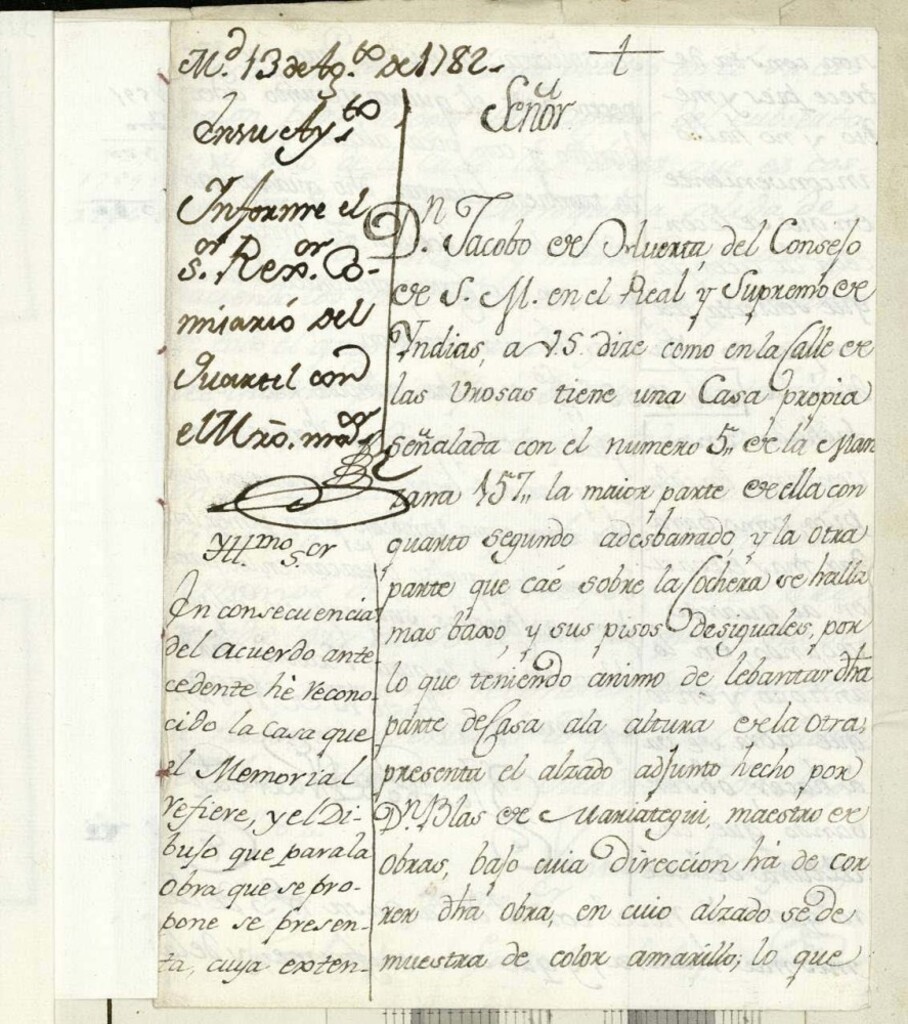 M.d 13 de Ag.to de 1782.
En su Ay.to
Informe el
s.or Rex.or Co-
misario del
Quartel con
el Mro. mor
Yll.mo s.or
En consecuencia
del acuerdo ante-
cedente hè recono-
cido la Casa que
el Memorial
refiere, y el Di-
bujo que para la
Obra que se pro-
pone se presen-
ta, cuya exten-
Señor
D.n Jacobo de Huerta, del Consejo
de S. M. en el Real y Supremo de
Yndias, a V.S. dize como en la Calle de
las Urosas tiene una Casa propia
señalada con el numero 5,, de la Man
zana 157,, la maior parte de ella con
quarto segundo adesbanado, y la otra
parte que caé sobre la Cochera se halla
mas baxo y sus pisos Desiguales, por
lo que teniendo animo de lebantar dha
parte de Casa ala altura de la otra,
presenta el alzado adjunto hecho por
D.n Blas de Mariategui, maestro de
obras, bajo cuia direccion há de cor
rer dha obra, en cuio alzado se de
muestra de color amarillo, lo que